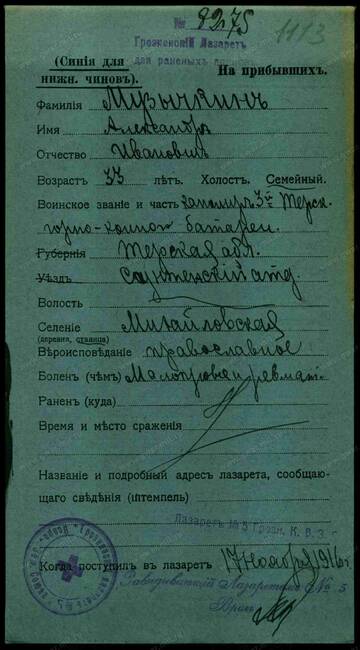 № 9275 1113
Грозненскій Лазаретъ
для раненыхъ
(Синія для
нижн. чиновъ).
На прибывшихъ.
Фамилія Музычкинъ
Имя Александръ
Отчество Ивановичъ
Возрастъ 33 лѣтъ. Холост. Семейный.
Воинское званіе и часть канониръ 3й Терск.
горно-конной батареи.
Губернія Терская обл.
Уѣздъ Сунженскій отд.
Волость
Селеніе Михайловская
(деревня, станица)
Вѣроисповѣданіе православное
Боленъ (чѣмъ) Малокровіе и ревмат.
Раненъ (куда)
Время и мѣсто сраженія
Названіе и подробный адресъ лазарета, сообщаю-
щаго свѣдѣнія (штемпель)
Лазаретъ № 5 Грозн. К. В. З.
Когда поступилъ въ лазаретъ 17 Ноября 1916 г.
Завѣдывающій Лазаретомъ № 5
Врачъ